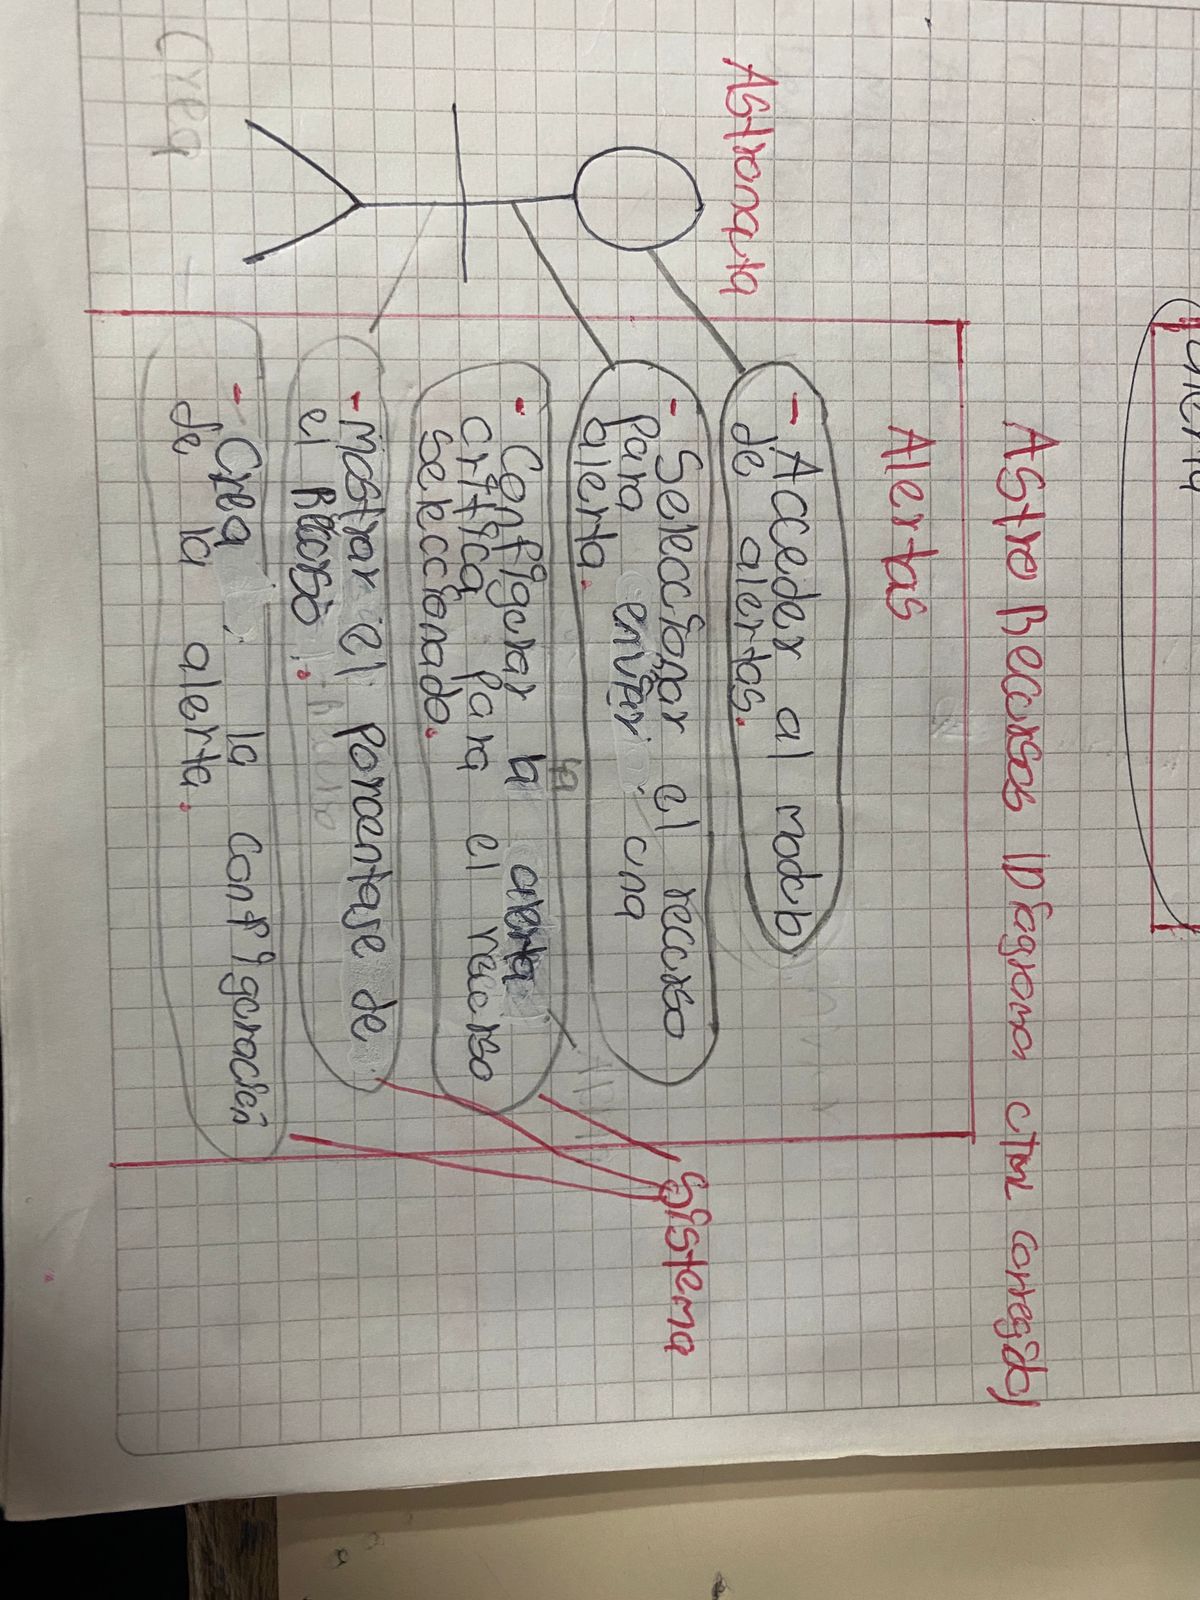 Astro Recursos Diagrama UML corregido
Alertas
Astronauta
- Acceder al modulo
de alertas.
- Seleccionar el recurso
para enviar una
alerta.
- Configurar la alerta
crítica para el recurso
seleccionado.
- Mostrar el porcentaje de
el Recurso.
- Crea la configuración
de la alerta.
Sistema
Crea